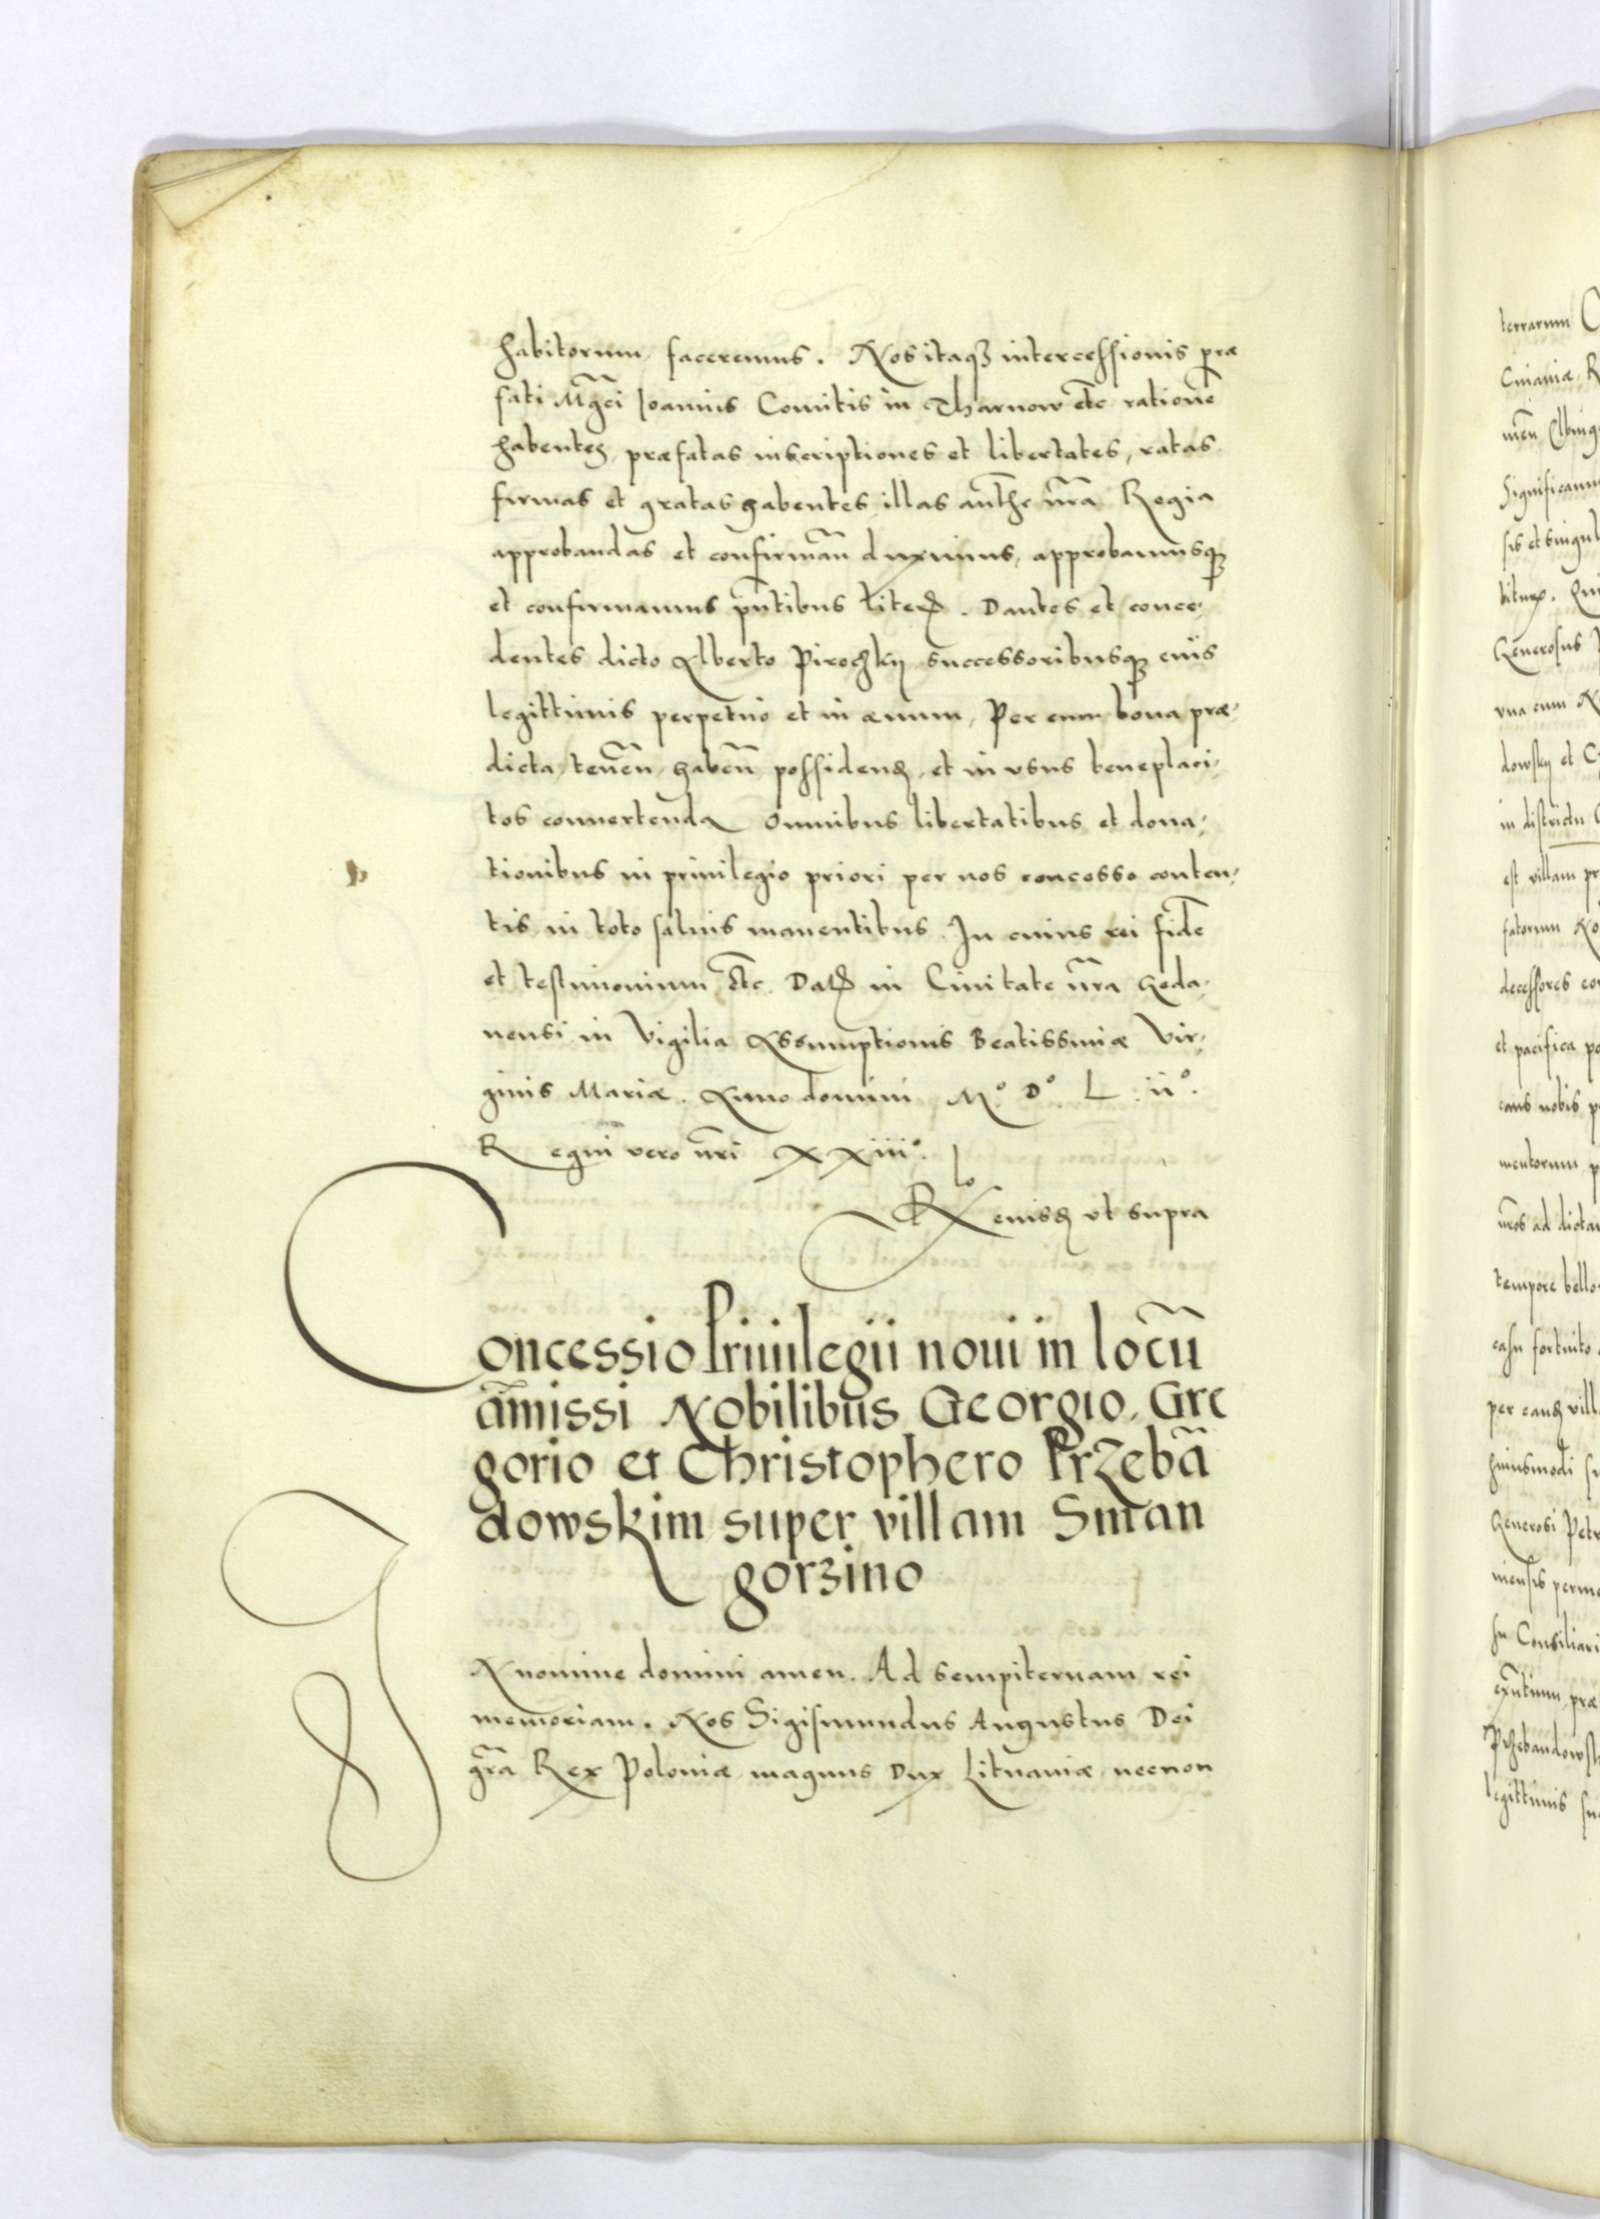 habitorum, faceremus. Nos itaq3 intercessionis præ
fati Mgci Joannis Comitis in Tharnow etc rationē
habentes, præfatas inscriptiones et libertates, ratas
firmas et gratas habentes, illas authe nra Regia
approbandas et confirmān duximus, approbamusq3
et confirmamus pntibus literꝭ. Dantes et conce,
dentes dicto Alberto Piroski successoribusq3 eius
legittimis perpetuo et in æuum, Per eum bona præ,
dicta, tenēn, habēn, possidenꝭ, et in vsus beneplaci,
tos conuertenda Omnibus libertatibus et dona,
tionibus in priuilegio priori per nos concesso conten,
tis in toto saluis manentibus. In cuius rei fidē
et testimonium etc. Datꝭ in Ciuitate nra Geda,
nensi in Vigilia Assumptionis Beatissimæ Vir,
ginis Mariæ. Anno domini M.° D.° L. ii°.
Regni vero nri xxiii°.
Reuisꝭ vt supra
Concessio Priuilegii noui in locū
amissi Nobilibus Georgio, Gre
gorio et Christophero Przebā
dowskim super villam Sman
gorzino
In nomine domini amen. Ad sempiternam rei
memoriam. Nos Sigismundus Augustus Dei
gra Rex Poloniæ, magnus Dux Lituaniæ, necnon
terrarum
men Elbing
sis et singul
Generosus
vna cum
dowsky et
in districtu
est villam
fatorum
decessores
et pacifica
cans nobis
mentorum
nros ad dictam
tempore bello
casu fortuito
per eanꝭ vill
huiusmodi
Generosi Petr
su Consiliari
legittimis